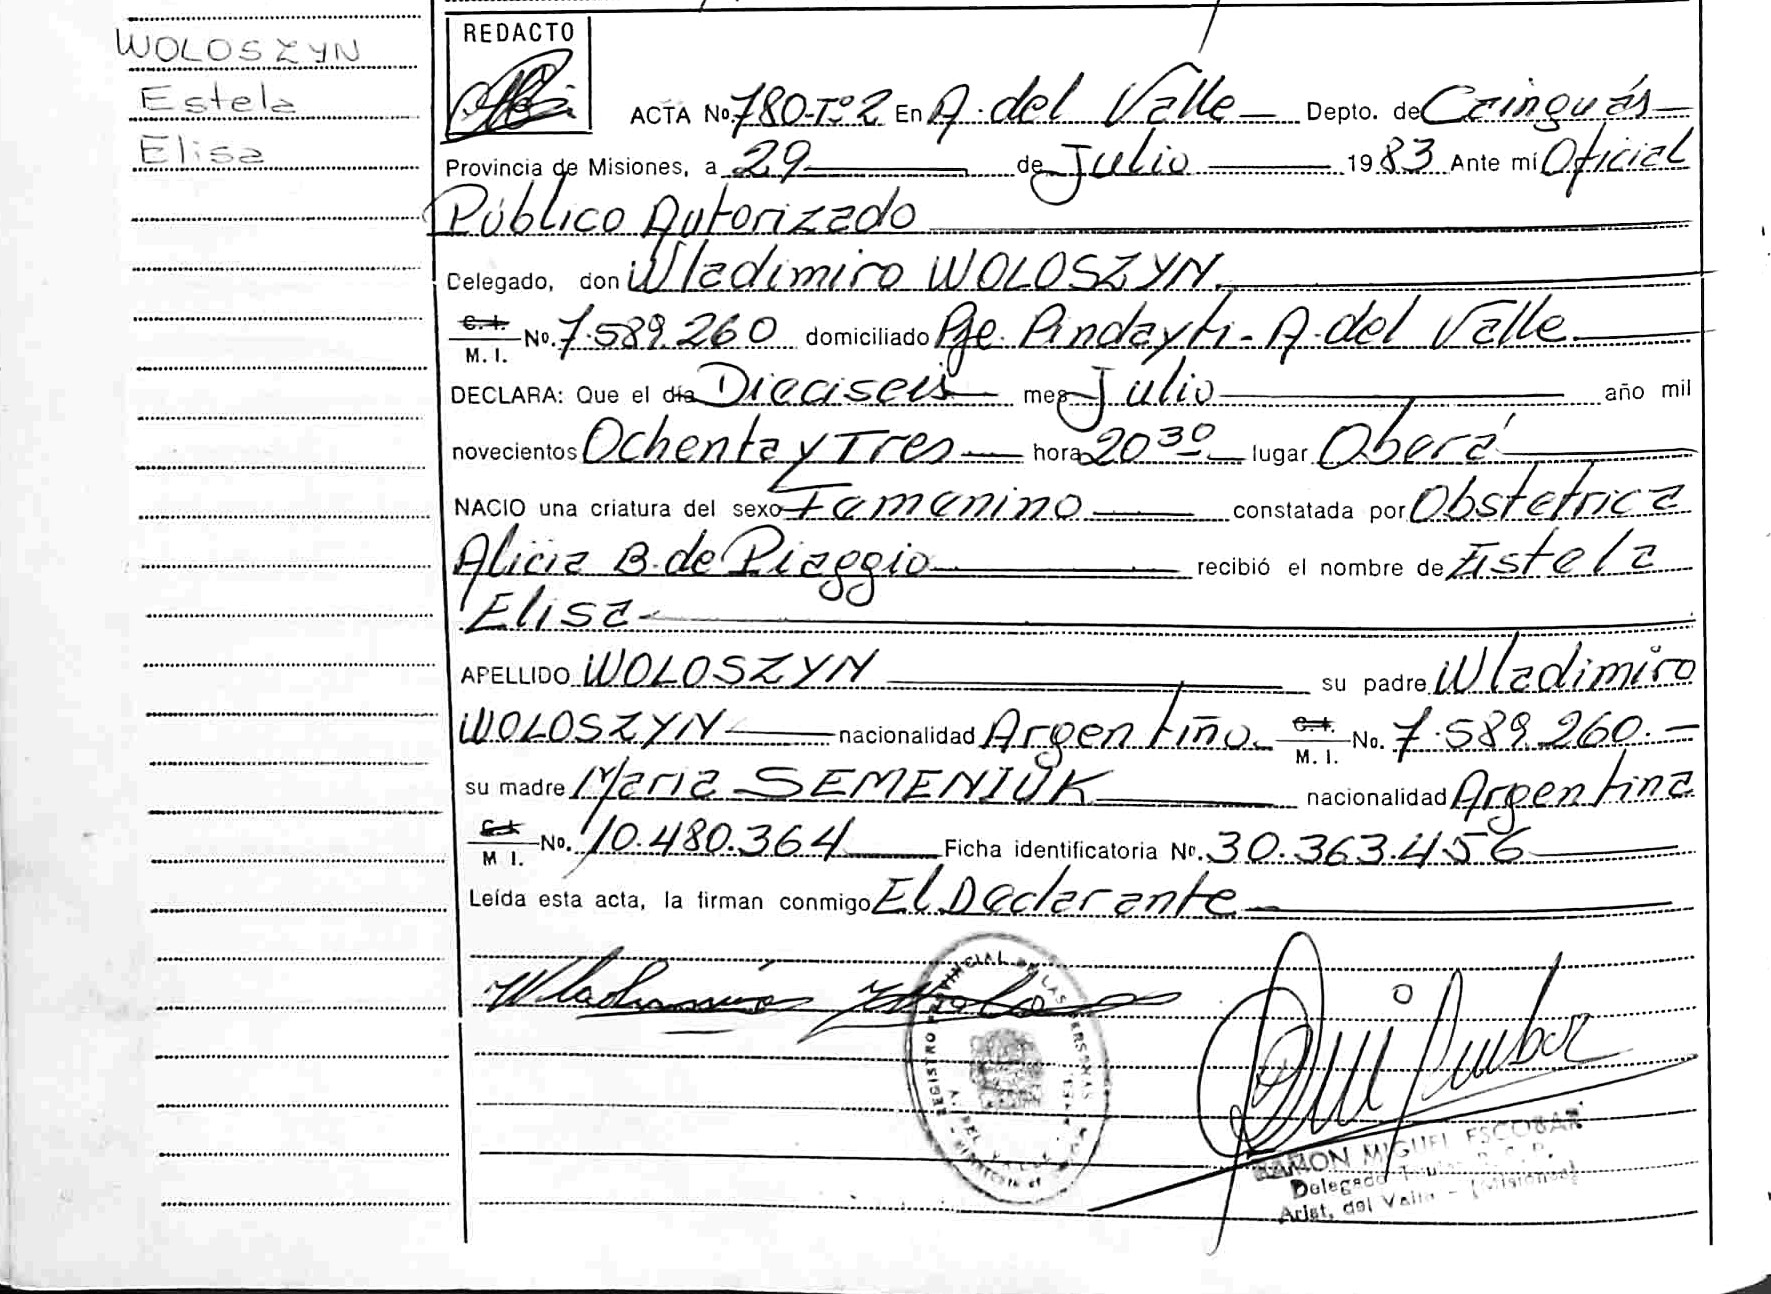 WOLOSZYN
Estela
Elisa
REDACTO
ACTA No 780-Tº2 En A. del Valle Depto. de Cainguás
Provincia de Misiones, a 29 de Julio 1983 Ante mí Oficial
Público Autorizado
Delegado, don Wladimiro WOLOSZYN.
C.I. M.I. No. 7.589.260 domiciliado Pje. Pindayti - A. del Valle
DECLARA: Que el día Dieciseis mes Julio año mil
novecientos Ochenta y Tres hora 20 30 lugar Oberá
NACIO una criatura del sexo Femenino constatada por Obstetrica
Alicia B. de Piaggio recibió el nombre de Estela
Elisa
APELLIDO WOLOSZYN su padre Wladimiro
WOLOSZYN nacionalidad Argentino. C.I. M.I. No. 7.589.260.-
su madre Maria SEMENIUK nacionalidad Argentina
C.I. M I. No. 10.480.364 Ficha identificatoria No. 30.363.456
Leída esta acta, la firman conmigo El Declarante
REGISTRO PROVINCIAL DE LAS PERSONAS
A. DEL VALLE
RAMON MIGUEL ESCOBAR
Delegado Titular R. C. P.
Arist. del Valle - (Misiones)